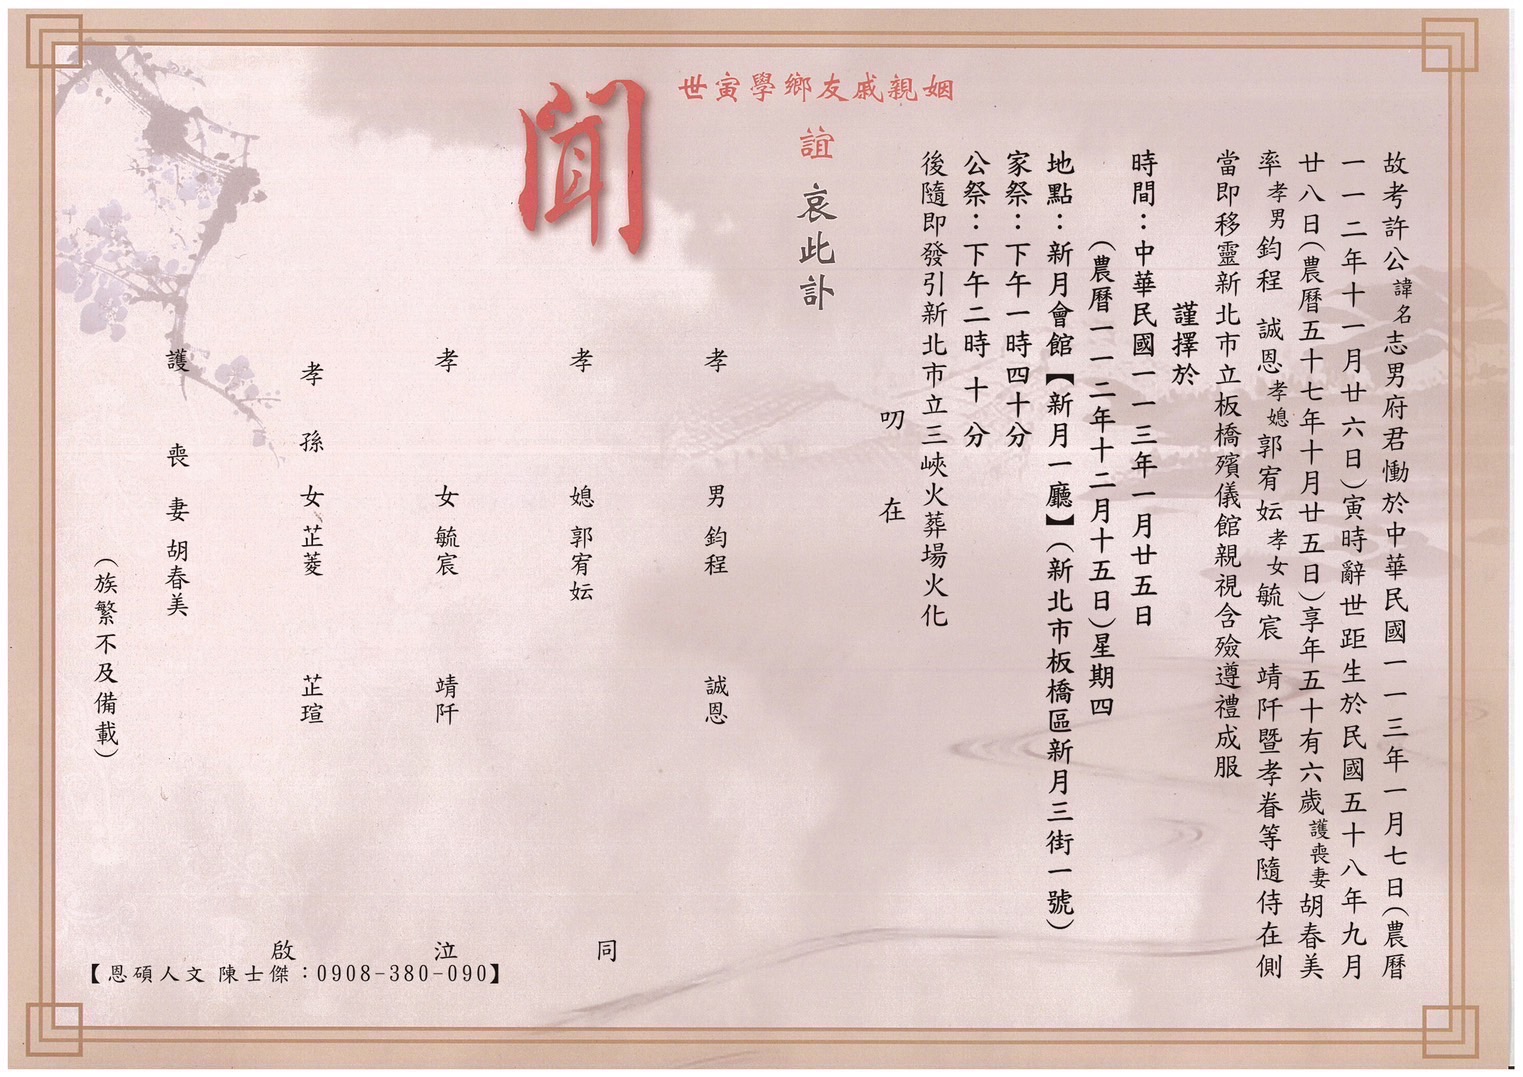 故考許公諱名志男府君慟於中華民國一一三年一月七日(農曆
一一二年十一月廿六日)寅時辭世距生於民國五十八年九月
廿八日(農曆五十七年十月廿五日)享年五十有六歲護喪妻胡春美
率孝男鈞程 誠恩孝媳郭宥妘孝女毓宸 靖阡暨孝眷等隨侍在側
當即移靈新北市立板橋殯儀館親視含殮遵禮成服
謹擇於
時間：中華民國一一三年一月廿五日
(農曆一一二年十二月十五日)星期四
地點：新月會館【新月一廳】(新北市板橋區新月三街一號)
家祭：下午一時四十分
公祭：下午二時 十 分
後隨即發引新北市立三峽火葬場火化
叨 在
姻親戚友鄉學寅世
誼 哀此訃
聞
孝 男 鈞程 誠恩
孝 媳 郭宥妘
孝 女 毓宸 靖阡
孝 孫 女 芷菱 芷瑄
護 喪 妻 胡春美
(族繁不及備載)
同 泣 啟
【恩碩人文 陳士傑：0908-380-090】